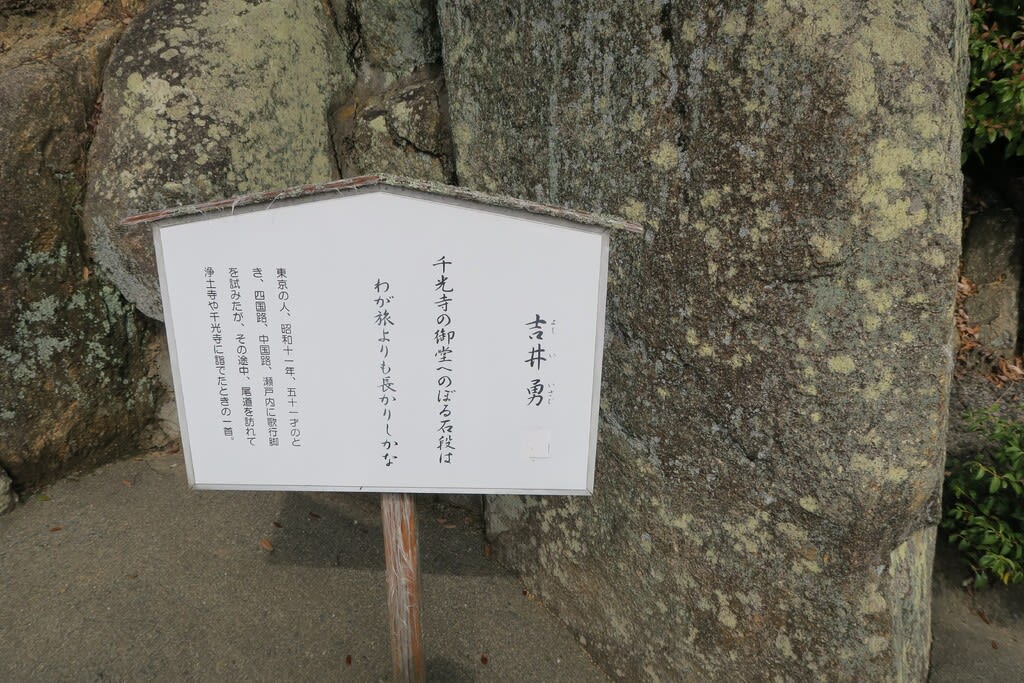 吉井勇
よしいいさじ
千光寺の御堂へのぼる石段は
わが旅よりも長かりしかな
東京の人、昭和十一年、五十一才のと
き、四国路、中国路、瀬戸内に歌行脚
を試みたが、その途中、尾道を訪れて
浄土寺や千光寺に詣でたときの一首。